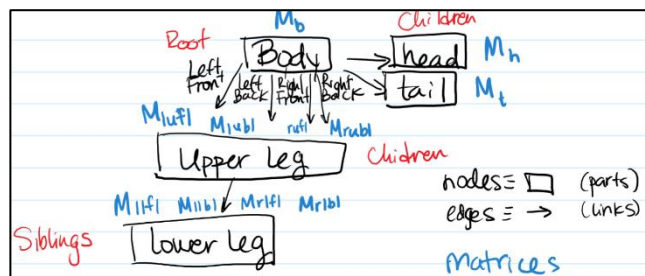 M_b
Children
Root
Body
head
M_h
Left Front
Left Back
Right Front
Right Back
tail
M_t
M_lufl
M_lubl
rufl
M_rubl
Upper leg
Chidren
M_llfl
M_llbl
M_rlfl
M_rlbl
nodes ≡ □ (parts)
edges ≡ → (links)
Siblings
lower leg
Matrices